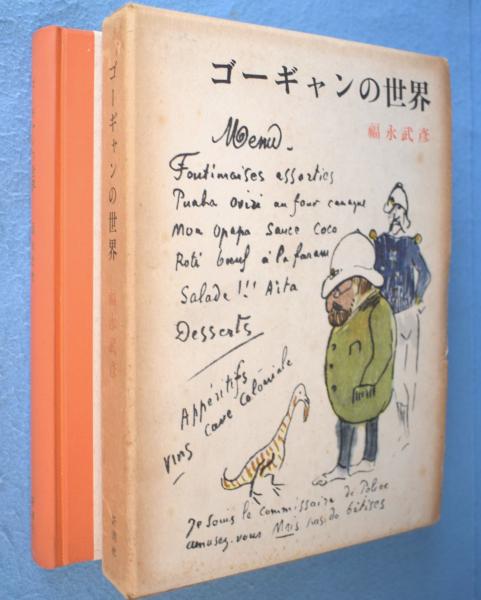 ゴーギャンの世界
福永武彦
Menu.
Fontimaises assorties
Puaha oviri au four canaque
Moa Opapa Sauce Coco
Roti bœuf à la faram
Salade !!! Aita
Desserts
Appéritifs
vins cave Coloniale
Je suis le commissaire de Police
amusez-vous Mais pas de bêtises
ゴーギャンの世界
福永武彦
新潮社